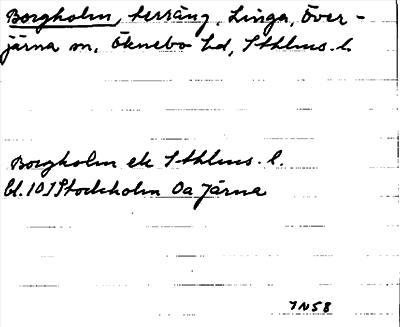 Borgholm, terräng, Linga, Över-
järna sn, Öknebo hd, Sthlms. l.
Borgholm ek Sthlms. l.
bl. 101 Stockholm Oa Järna
JN58